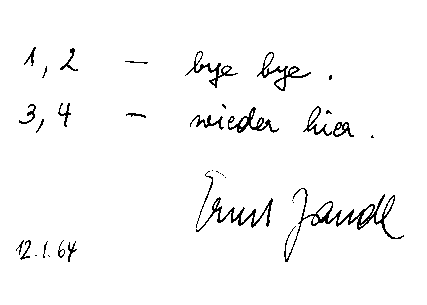 1, 2 — bye bye.
3, 4 — wieder hier.
Ernst Jandl
12.1.64